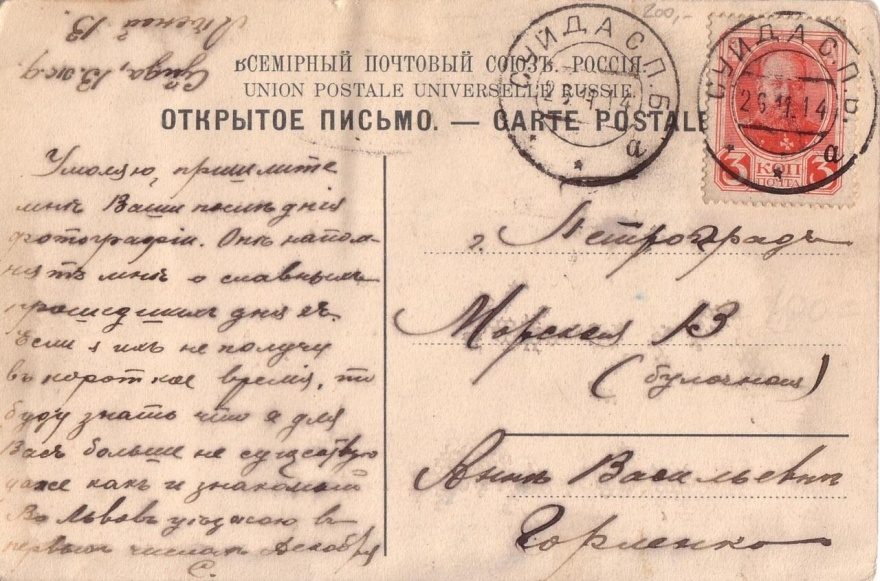 200,-
Суйда, В. ж. д.
В.
ВСЕМІРНЫЙ ПОЧТОВЫЙ СОЮЗЪ. РОССІЯ
UNION POSTALE UNIVERSELLE. RUSSIE.
ОТКРЫТОЕ ПИСЬМО. — CARTE POSTALE
СУЙДА С.П.Б.
26 11 14
а
СУЙДА С.П.Б.
26 11 14
а
3 КОП 3
ПОЧТА
Умоляю, пришлите
мнѣ Ваши послѣднія
фотографіи. Онѣ напом-
нятъ мнѣ о славныхъ
прошедшихъ дняхъ.
Если я ихъ не получу
въ короткое время, то
буду знать что я для
Васъ больше не существую
даже какъ и знакомый
Во Львовъ уѣзжаю въ
первыхъ числахъ Декабря
С.
г. Петроградъ
Морская 13
(булочная)
Аннѣ Васильевнѣ
Горленко